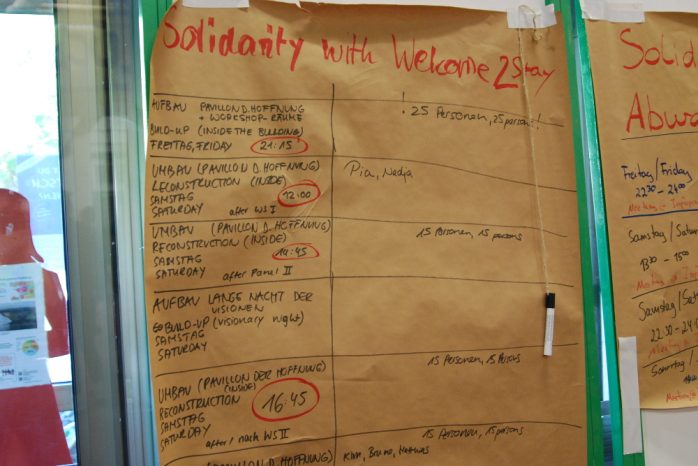 Solidarity with Welcome 2 Stay
AUFBAU PAVILLON D. HOFFNUNG
+ WORKSHOP-RÄUME
BUILD-UP (INSIDE THE BUILDING)
FREITAG, FRIDAY 21:15
! 25 Personen, 25 persons!
UMBAU (PAVILLON D. HOFFNUNG)
RECONSTRUCTION (INSIDE)
SAMSTAG 12:00
SATURDAY after WS I
Pia, Nadja
UMBAU (PAVILLON D. HOFFNUNG)
RECONSTRUCTION (INSIDE)
SAMSTAG 14:45
SATURDAY after Panel II
15 Personen, 15 persons
AUFBAU LANGE NACHT DER
VISIONEN
BUILD-UP (visionary night)
SAMSTAG
SATURDAY
UMBAU (PAVILLON DER HOFFNUNG)
(INSIDE)
RECONSTRUCTION 16:45
SAMSTAG
SATURDAY after/nach WS II
15 Personen, 15 Persons
15 Personen, 15 persons
(PAVILLON D. HOFFNUNG)
Bruno,
Solid
Abwa
Freitag/Friday
22:30 - 24:00
Samstag/Satur
13:30 - 15:00
Samstag/Sat
22:30 - 24:0
Sonntag